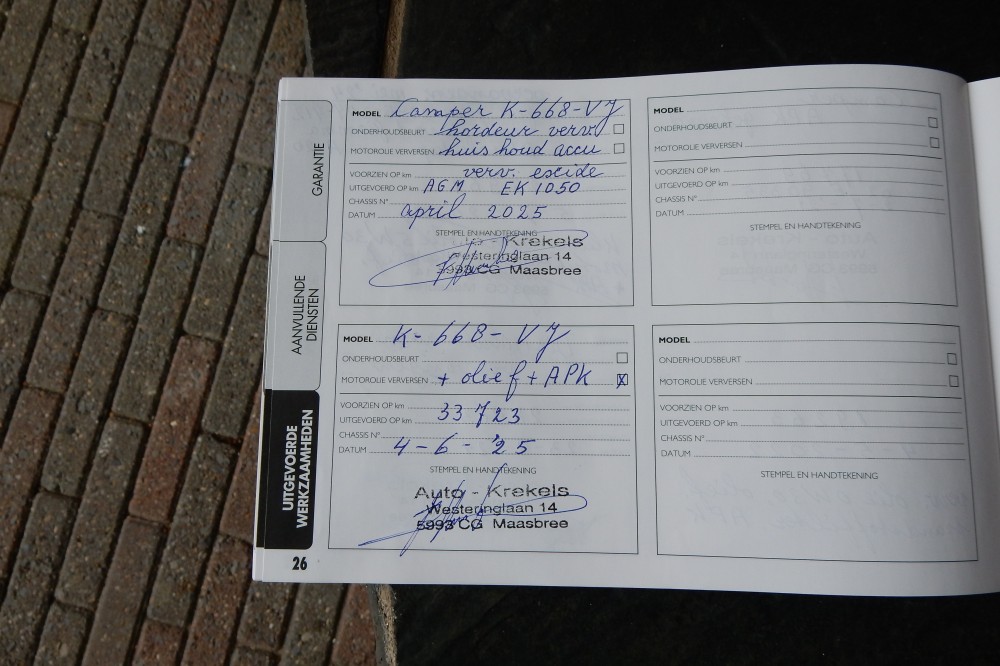 GARANTIE
AANVULLENDE
DIENSTEN
UITGEVOERDE
WERKZAAMHEDEN
26
MODEL Camper K-668-VJ
ONDERHOUDSBEURT hordeur verv.
MOTOROLIE VERVERSEN huishoud accu
VOORZIEN OP km verv. exide
UITGEVOERD OP km AGM EK 1050
CHASSIS N°
DATUM april 2025
STEMPEL EN HANDTEKENING
Krekels
Westeringlaan 14
5993 CG Maasbree
MODEL K-668-VJ
ONDERHOUDSBEURT
MOTOROLIE VERVERSEN + olie f + APK X
VOORZIEN OP km
UITGEVOERD OP km 33723
CHASSIS N°
DATUM 4-6-'25
STEMPEL EN HANDTEKENING
Auto - Krekels
Westeringlaan 14
5993 CG Maasbree
MODEL
ONDERHOUDSBEURT
MOTOROLIE VERVERSEN
VOORZIEN OP km
UITGEVOERD OP km
CHASSIS N°
DATUM
STEMPEL EN HANDTEKENING
MODEL
ONDERHOUDSBEURT
MOTOROLIE VERVERSEN
VOORZIEN OP km
UITGEVOERD OP km
CHASSIS N°
DATUM
STEMPEL EN HANDTEKENING